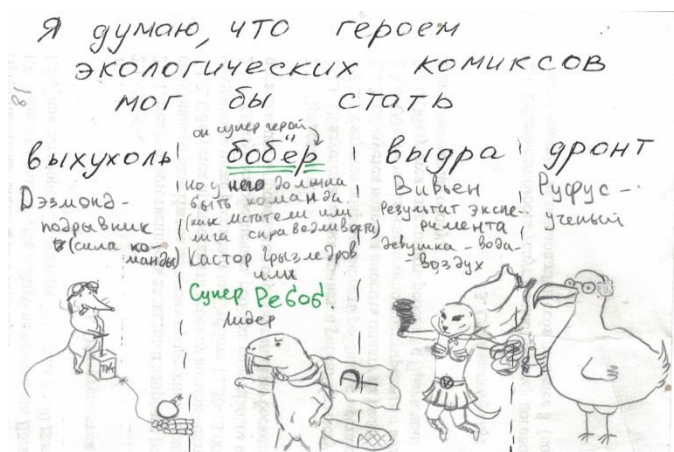 Я думаю, что героем
экологических комиксов
мог бы стать
он супер герой
выхухоль
Дэзмонд -
подрывник
(сила ко-
манды)
бобёр
но у него должна
быть команда.
(как мстители или
лига справедливости)
Кастор Грызледров
или
Супер Ребоб.
Лидер
выдра
Вивьен
результат экспе-
римента
девушка - вода-
воздух
дронт
Руфус -
ученый
ТНТ
V
18